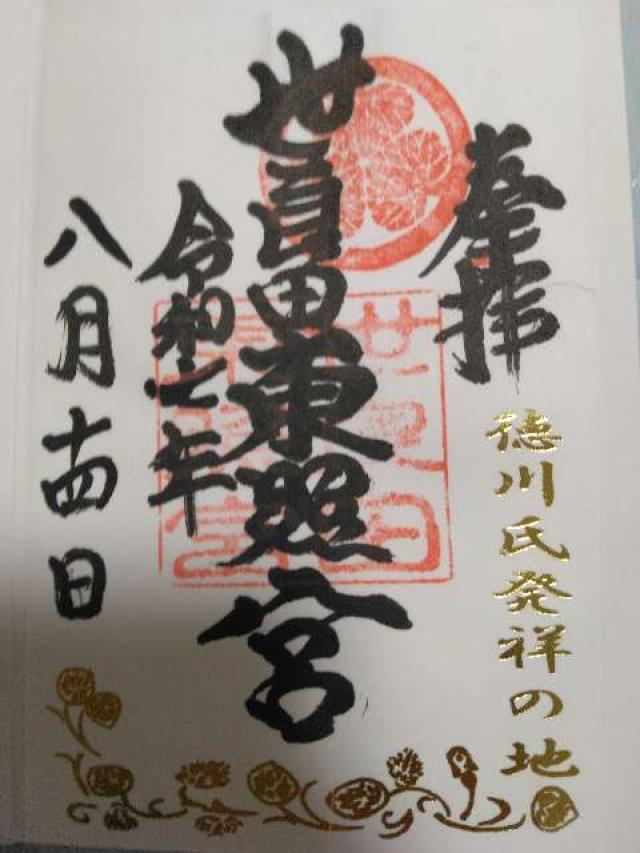 奉拝
徳川氏発祥の地
世良田東照宮
令和七年
八月十四日